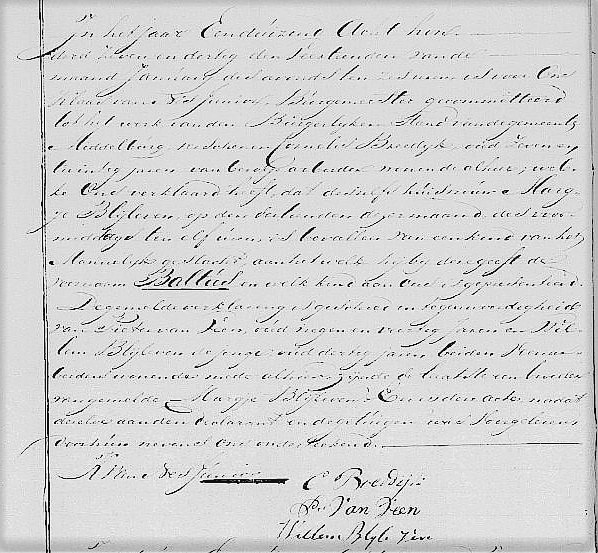 In het jaar Eenduizend Acht hon-
derd Zeven en dertig den Veertienden van de
maand Januarij des avonds ten
Klaas van Junior, Burgemeester gecommitteerd
tot het werk van den Burgerlyken Stand van de gemeente
Middelburg, verschenen Cornelis Bredyk, oud Zeven en
twintig jaren van beroep arbeider wonende alhier; wel-
ke Ons verklaard heeft, dat deszelfs huisvrouw Marg-
je Blyleven, op den dertienden dezer maand des voor-
middags ten elf uren, is bevallen van een kind van het
Mannelyk geslacht, aan hetwelk hy by deze geeft de
voornaam Baltus en welk kind aan Ons is gepresenteerd.
De gemelde verklaring is geschied in tegenwoordigheid
van Pieter van Veen, oud negen en veertig jaren en Wil-
lem Blyleven de jonge, oud dertig jaren beiden
beiders wonende mede alhier, zynde de laatste een broeder
van gemelde Margje Blyleven. En is deze acte, nadat
dezelve aan den declarant en de getuigen was Voorgelezen
door hun nevens ons onderteekend.
Junior
C Bredijk
P. Van Veen
Willem Blyleven